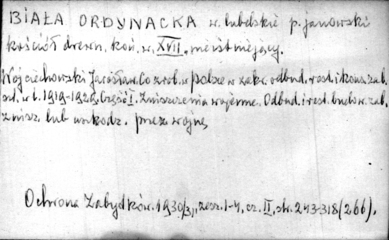 BIAŁA ORDYNACKA w. lubelskie p. janowski
kościół drewn. koń. w. XVII. nieistniejący.
Wojciechowski Jarosław. Co zrob. w Polsce w zakr. odbud. rest. i kons. zab.
szt. w l. 1919-1929. Część I. Zniszczenia wojenne. Odbud. i rest. budow. zab.
zniszcz. lub uszkodz. przez wojnę,
Ochrona Zabytków. 1930/31, zesz. 1-4, cz. II, str. 243-318 (266).